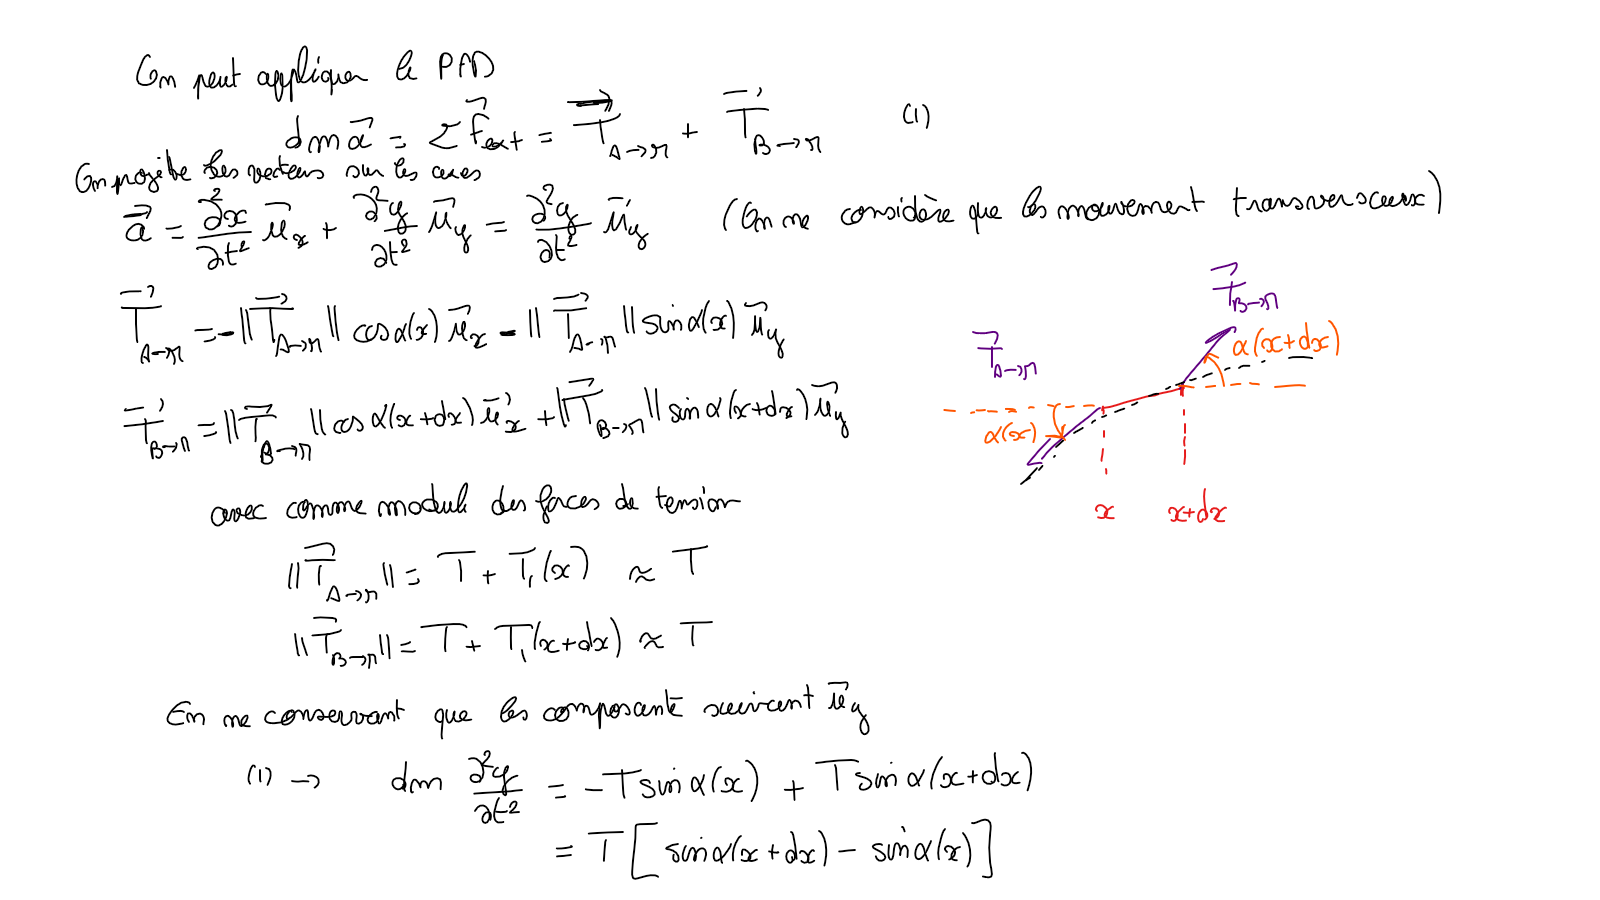 On peut appliquer le PFD
dm a⃗ = Σ F⃗ext = T⃗A→M + T⃗B→M (1)
On projète les vecteurs sur les axes
a⃗ = ∂²x/∂t² u⃗x + ∂²y/∂t² u⃗y = ∂²y/∂t² u⃗y (On ne considère que les mouvement transversaux)
T⃗A→M = -||T⃗A→M|| cos α(x) u⃗x - ||T⃗A→M|| sin α(x) u⃗y
T⃗B→M = ||T⃗B→M|| cos α(x+dx) u⃗x + ||T⃗B→M|| sin α(x+dx) u⃗y
avec comme module des forces de tension
||T⃗A→M|| = T + T₁(x) ≈ T
||T⃗B→M|| = T + T₁(x+dx) ≈ T
En ne conservant que les composante suivant u⃗y
(1) → dm ∂²y/∂t² = -T sin α(x) + T sin α(x+dx)
= T [ sin α(x+dx) - sin α(x) ]
T⃗B→M
α(x+dx)
T⃗A→M
α(x)
x x+dx